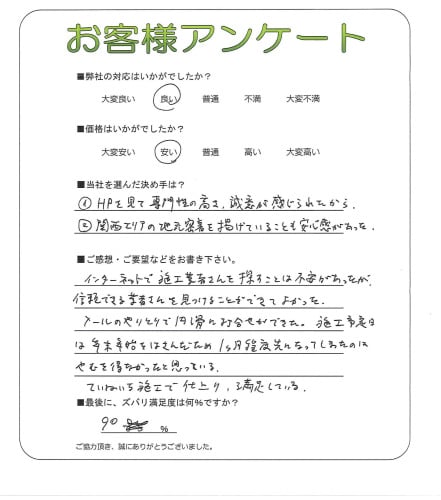 お客様アンケート
■弊社の対応はいかがでしたか？
大変良い 良い 普通 不満 大変不満
■価格はいかがでしたか？
大変安い 安い 普通 高い 大変高い
■当社を選んだ決め手は？
① HPを見て専門性の高さ、誠意が感じられたから。
② 関西エリアの地元密着を掲げていることも安心感があった。
■ご感想・ご要望などをお書き下さい。
インターネットで施工業者さんを探すことは不安があったが、
信頼できる業者さんを見つけることができてよかった。
メールのやりとりで円滑に打合せができた。施工予定日
は年末年始をはさんだため1ヶ月程度先になってしまったのは
やむを得なかったと思っている。
ていねいな施工で仕上り、満足している。
■最後に、ズバリ満足度は何％ですか？
90 ％
ご協力頂き、誠にありがとうございました。